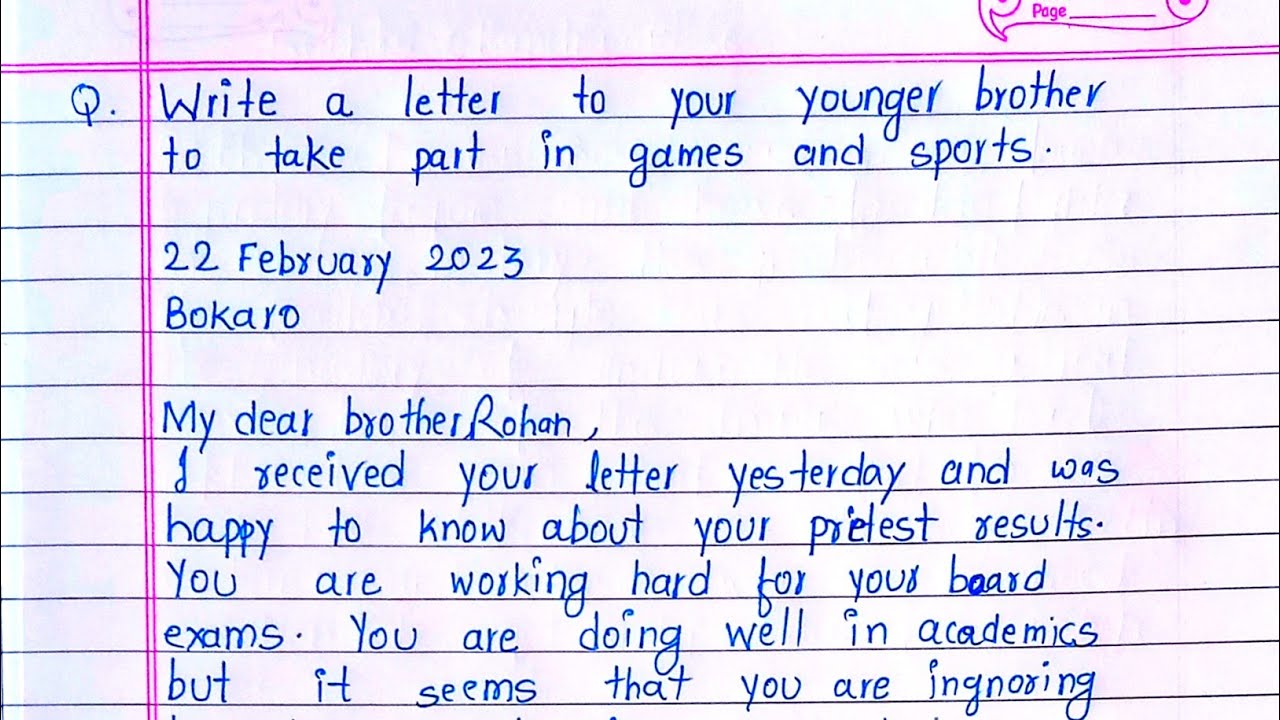 Page
Q. Write a letter to your younger brother
to take part in games and sports.
22 February 2023
Bokaro
My dear brother, Rohan,
I received your letter yesterday and was
happy to know about your pretest results.
You are working hard for your board
exams. You are doing well in academics
but it seems that you are ingnoring